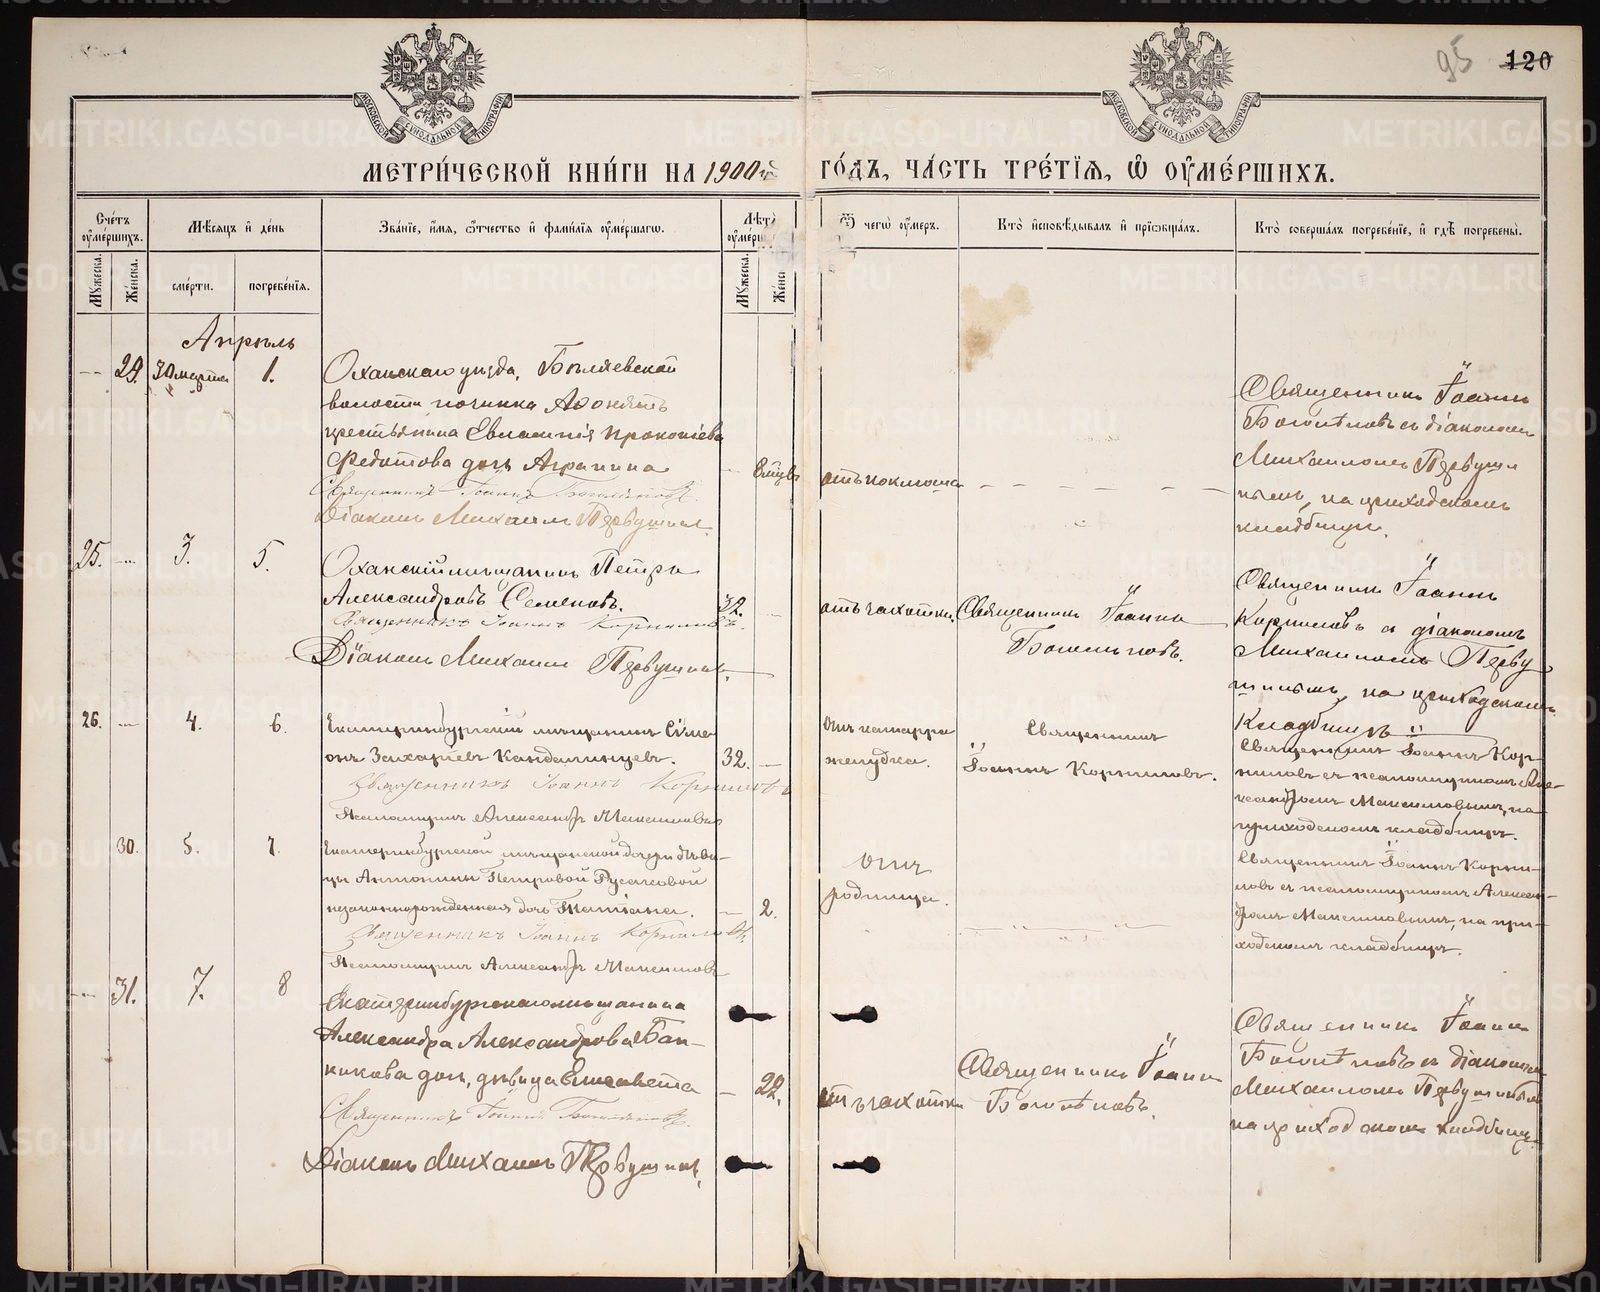 95 120
МЕТРИ́ЧЕСКОЙ КНИ́ГИ НА 1900й ГО́ДЪ, ЧА́СТЬ ТРЕ́ТЇѦ, Ѡ҆ ОУ҆МЕ́РШИХЪ.
Счетъ оумершихъ.
Мѣсѧцъ и день
Званїе, имѧ, ѿчество и фамилїѧ оумершагѡ.
Лѣта
Ѿ чегѡ оумеръ.
Кто исповѣдывалъ и прїѡбщалъ.
Кто совершалъ погребенїе, и гдѣ погребены.
Мужеска.
Женска.
смерти.
погребенїѧ.
Мужеска.
Апрѣль
29. 30 марта 1.
Оханскаго уѣзда, Бѣляевской
волости починка
крестьянина Евлампія Прокопіева
Федотова дочь Агрипина
Священникъ Іоаннъ Боголѣповъ.
Діаконъ Михаилъ Первушинъ.
отъ коклюша
Священникъ Іоаннъ
Боголѣповъ съ діакономъ
Михаиломъ Первуши
нымъ, на приходскомъ
кладбищѣ.
25. 3. 5.
Оханскій мѣщанинъ Петръ
Александровъ Семеновъ.
Священникъ Іоаннъ Корниловъ.
Діаконъ Михаилъ Первушинъ.
32.
отъ чахотки.
Священникъ Іоаннъ
Боголѣповъ.
Священникъ Іоаннъ
Корниловъ съ діакономъ
Михаиломъ Перву
шинымъ, на приходскомъ
кладбищѣ
26. 4. 6.
Екатеринбургскій мѣщанинъ Сѵме
онъ Захаріевъ Кандалинцевъ.
Священникъ Іоаннъ Корниловъ
Псаломщикъ Александръ Максимовъ
32.
отъ катарра
желудка.
Священникъ
Іоаннъ Корниловъ.
Священникъ Іоаннъ Кор-
ниловъ съ псаломщикомъ Але-
ксандромъ Максимовымъ, на
приходскомъ кладбищѣ.
30. 5. 7.
Екатеринбургской мѣщанской дочери дѣви-
цы Антонины Петровой Русаковой
незаконнорожденная дочь Татіана.
Священникъ Іоаннъ Корниловъ.
Псаломщикъ Александръ Максимовъ
2.
отъ
родимца.
Священникъ Іоаннъ Корни-
ловъ съ псаломщикомъ Алексан-
дромъ Максимовымъ, на при-
ходскомъ кладбищѣ.
31. 7. 8
Екатеринбургскаго мѣщанина
Александра Александрова Бан-
никова дочь, дѣвица Елисавета
Священникъ Іоаннъ Боголѣповъ.
Діаконъ Михаилъ Первушинъ.
22.
отъ чахотки
Священникъ Іоаннъ
Боголѣповъ.
Священникъ Іоаннъ
Боголѣповъ съ діакономъ
Михаиломъ Первушинымъ
на приходскомъ кладбищѣ.
METRIKI.GASO-URAL.RU